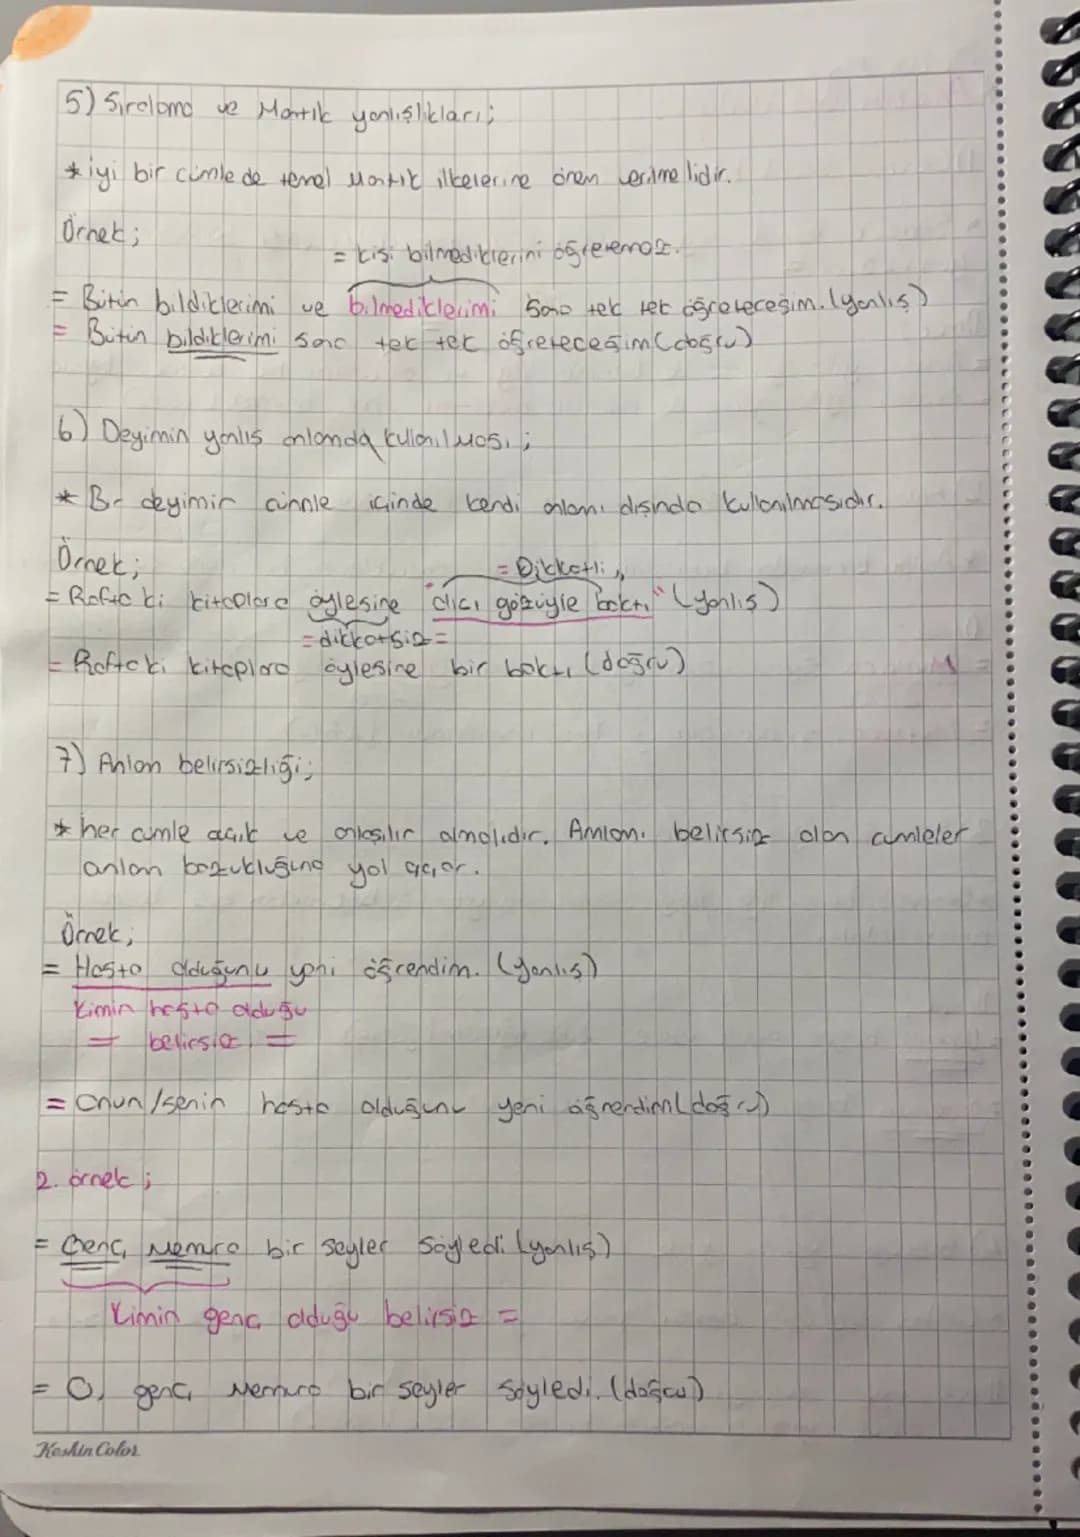 5) Sıralama ve Mantık yanlışlıkları;
* iyi bir cümlede temel mantık ilkelerine önem verilmelidir.
Örnek;
= kişi bilmediklerini öğretemez.
= Bütün bildiklerimi ve bilmediklerimi sana tek tek öğreteceğim. (yanlış)
= Bütün bildiklerimi sana tek tek öğreteceğim (doğru)
6) Deyimin yanlış anlamda kullanılması;
* Bir deyimin cümle içinde kendi anlamı dışında kullanılmasıdır.
Örnek;
= Dikkatli
= Raftaki kitaplara öylesine "alıcı gözüyle baktı" (yanlış)
= dikkatsiz =
= Raftaki kitaplara öylesine bir baktı (doğru)
7) Anlam belirsizliği;
* her cümle açık ve anlaşılır olmalıdır. Anlamı belirsiz olan cümleler
anlam bozukluğuna yol açar.
Örnek;
= Hasta olduğunu yeni öğrendim. (yanlış)
Kimin hasta olduğu
= belirsiz =
= Onun/senin hasta olduğunu yeni öğrendim (doğru)
2. örnek;
= Genç, memura bir şeyler söyledi (yanlış)
Kimin genç olduğu belirsiz =
= O, genç memura bir şeyler söyledi. (doğru)
Keskin Color